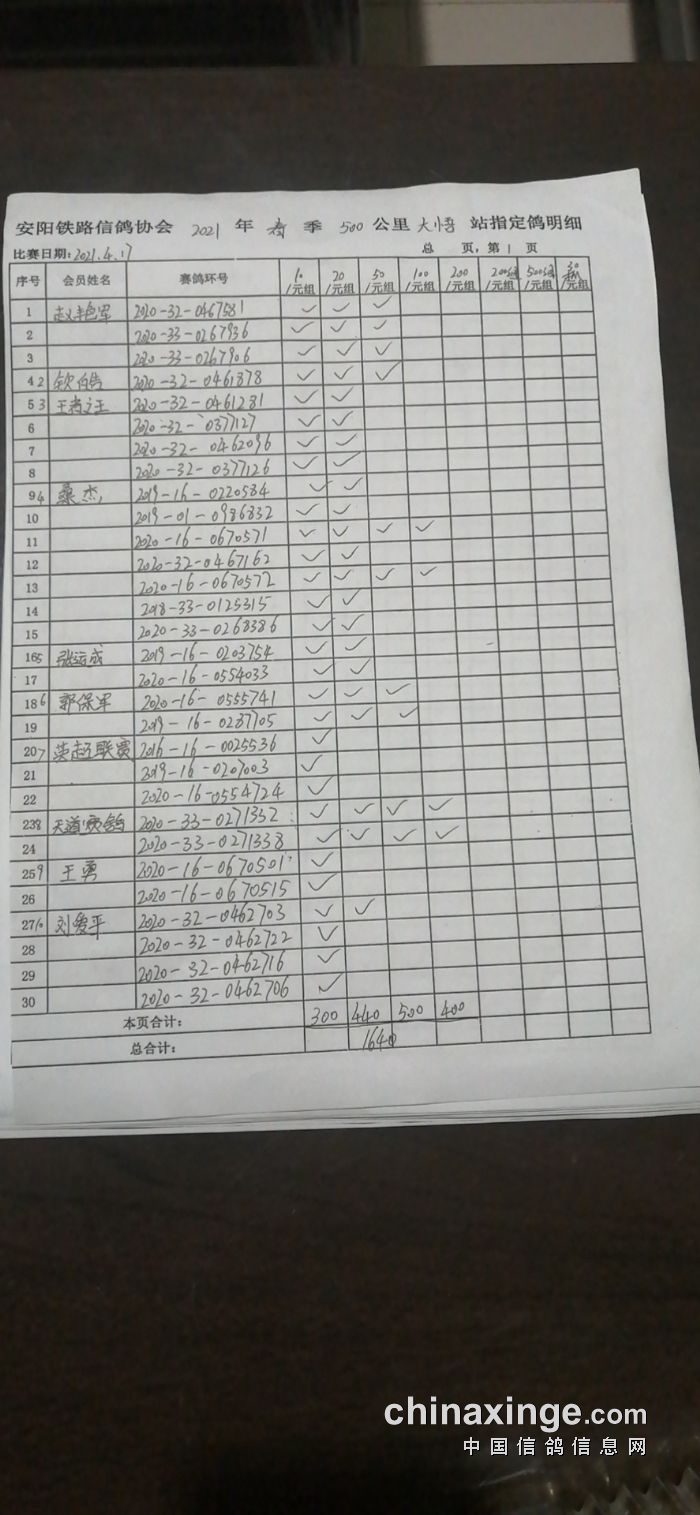 安阳铁路信鸽协会 2021 年 春 季 500 公里 大悟 站指定鸽明细
比赛日期:2021.4.17 总 页,第 1 页
序号 会员姓名 赛鸽环号 10/元组 20/元组 50/元组 100/元组 200/元组 /元组 /元组 /元组
1 赵艳军 2020-32-0467581 ✓ ✓ ✓
2 2020-33-0267936 ✓ ✓ ✓
3 2020-33-0267906 ✓ ✓ ✓
4 2 2020-32-0461878 ✓ ✓ ✓
5 3 2020-32-0461281 ✓ ✓
6 2020-32-0377127 ✓ ✓
7 2020-32-0462096 ✓ ✓
8 2020-32-0377126 ✓ ✓
9 4 桑杰 2019-16-0220584 ✓ ✓
10 2019-01-0986832 ✓ ✓
11 2020-16-0670571 ✓ ✓ ✓ ✓
12 2020-32-0467162 ✓ ✓
13 2020-16-0670572 ✓ ✓ ✓ ✓
14 2018-33-0125315 ✓ ✓
15 2020-33-0268386 ✓ ✓
16 5 张运成 2019-16-0203754 ✓ ✓
17 2020-16-0554033 ✓ ✓
18 6 郭保军 2020-16-0555741 ✓ ✓ ✓
19 2019-16-0237105 ✓ ✓ ✓
20 7 2016-16-0025536 ✓
21 2019-16-0207003 ✓
22 2020-16-0554724 ✓
23 8 2020-33-0271332 ✓ ✓ ✓ ✓
24 2020-33-0271338 ✓ ✓ ✓ ✓
25 9 王勇 2020-16-0670501 ✓
26 2020-16-0670515 ✓
27 10 刘爱平 2020-32-0462703 ✓ ✓
28 2020-32-0462722 ✓
29 2020-32-0462716 ✓
30 2020-32-0462706 ✓
本页合计: 300 440 500 400
总合计: 1640
chinaxinge.com
中国信鸽信息网